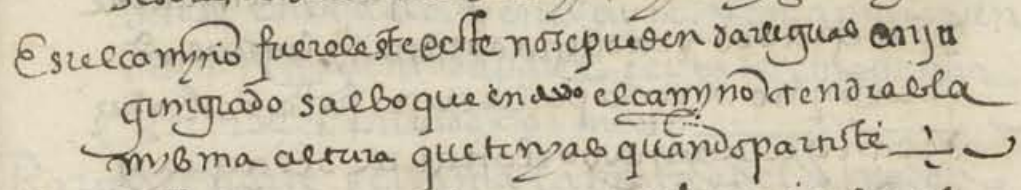 E si el camyno fuere leste oeste no se pueden dar leguas en nju
gun grado salbo que en todo el camyno tendras la
mysma altura que tenyas quando partiste